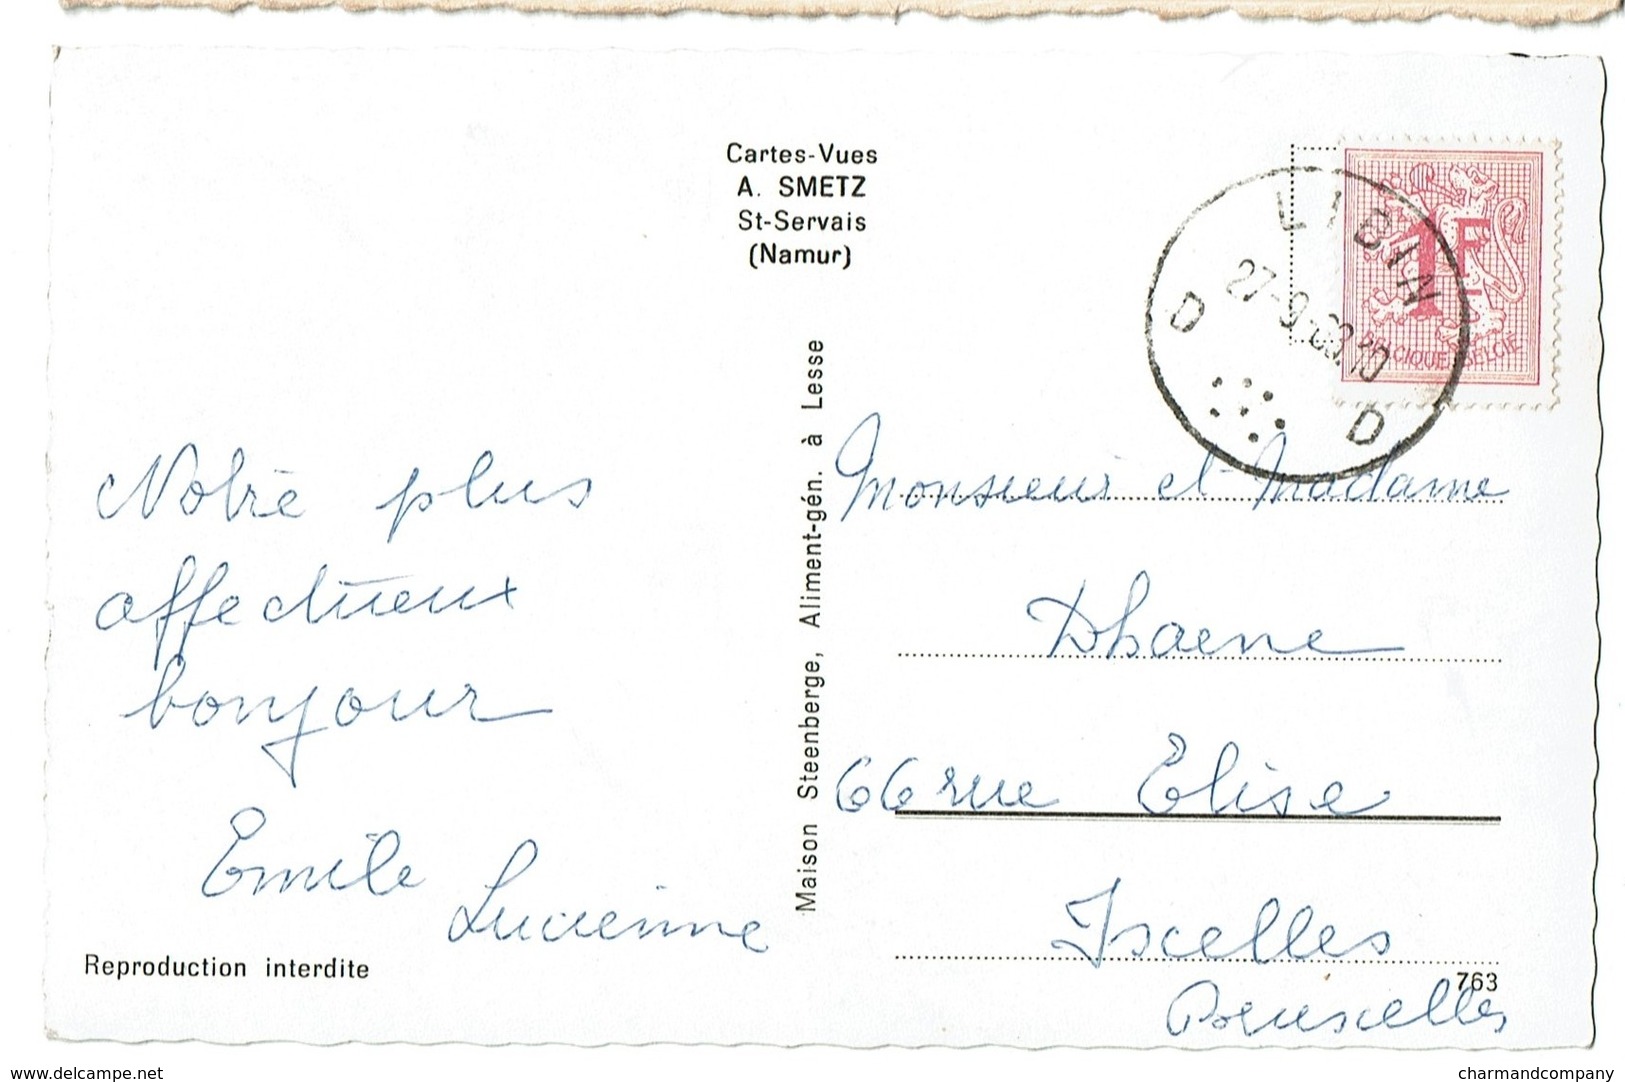 Cartes-Vues
A. SMETZ
St-Servais
(Namur)
LIBIN
27-9
D D
1F
BELGIQUE BELGIE
Notre plus
affectueux
bonjour
Emile
Lucienne
Reproduction interdite
Maison Steenberge, Aliment-gén. à Lesse
Monsieur et Madame
Dhaene
66 rue Elise
Ixelles
763
Bruxelles
www.delcampe.net
charmandcompany